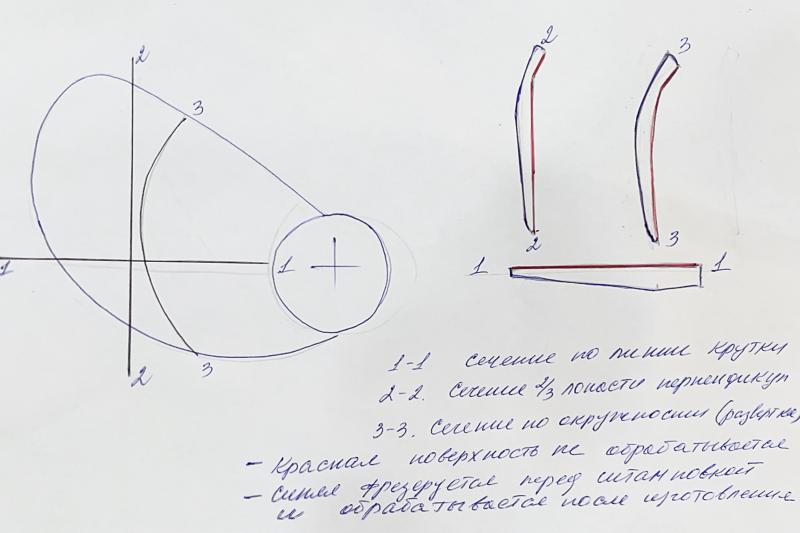 2
3
1
1
2
3
2
3
2
3
1
1
1-1 Сечение по линии крутки
2-2. Сечение 2/3 лопасти перпендикул
3-3. Сечение по окружности (развертка)
- Красная поверхность не обрабатывается
- Синяя фрезеруется перед штамповкой
и обрабатывается после изготовления